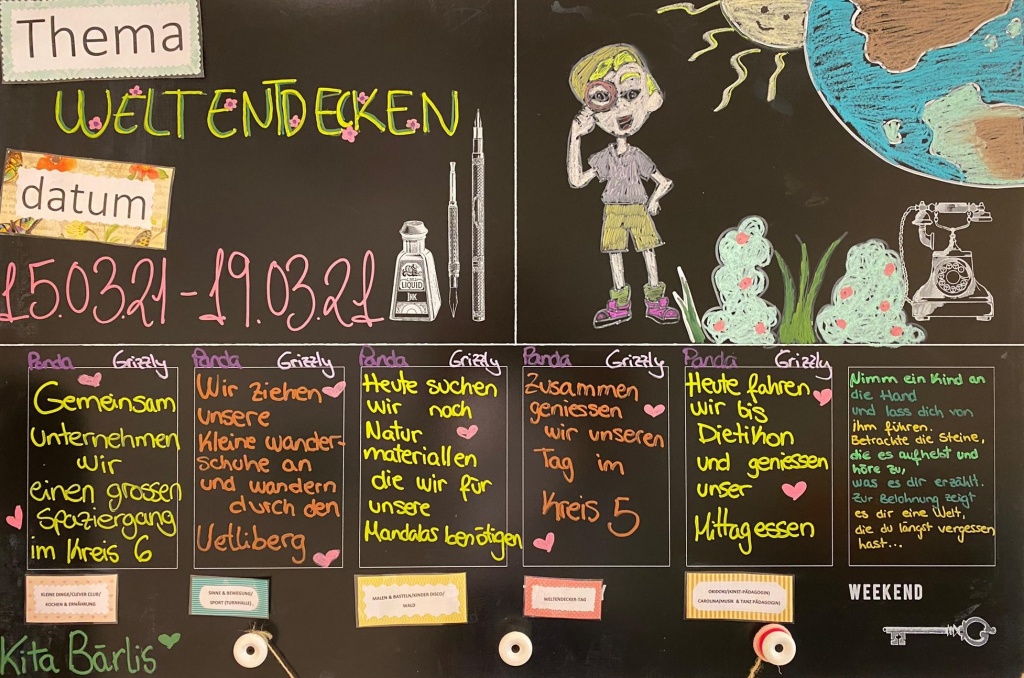 Thema
WELTENTDECKEN
datum
15.03.21 - 19.03.21
LIQUID
INK
Panda Grizzly
Gemeinsam
unternehmen
wir
einen grossen
Spaziergang
im Kreis 6
KLEINE DINGE/CLEVER CLUB/
KOCHEN & ERNÄHRUNG
Panda Grizzly
Wir ziehen
unsere
kleine wander-
schuhe an
und wandern
durch den
Uetliberg
SINNE & BEWEGUNG/
SPORT (TURNHALLE)
Panda Grizzly
Heute suchen
wir nach
Natur
materiallen
die wir für
unsere
Mandalas benötigen
MALEN & BASTELN/KINDER DISCO/
WALD
Panda Grizzly
Zusammen
geniessen
wir unseren
Tag im
Kreis 5
WELTENDECKER-TAG
Panda Grizzly
Heute fahren
wir bis
Dietikon
und geniessen
unser
Mittagessen
OKIDOKI(KINST-PÄDAGOGIN)
CAROLINA(MUSIK & TANZ PÄDAGOGIN)
Nimm ein Kind an
die Hand
und lass dich von
ihm führen.
Betrachte die Steine,
die es aufhebt und
höre zu,
was es dir erzählt.
Zur Belohnung zeigt
es dir eine Welt,
die du längst vergessen
hast...
WEEKEND
Kita Bärlis